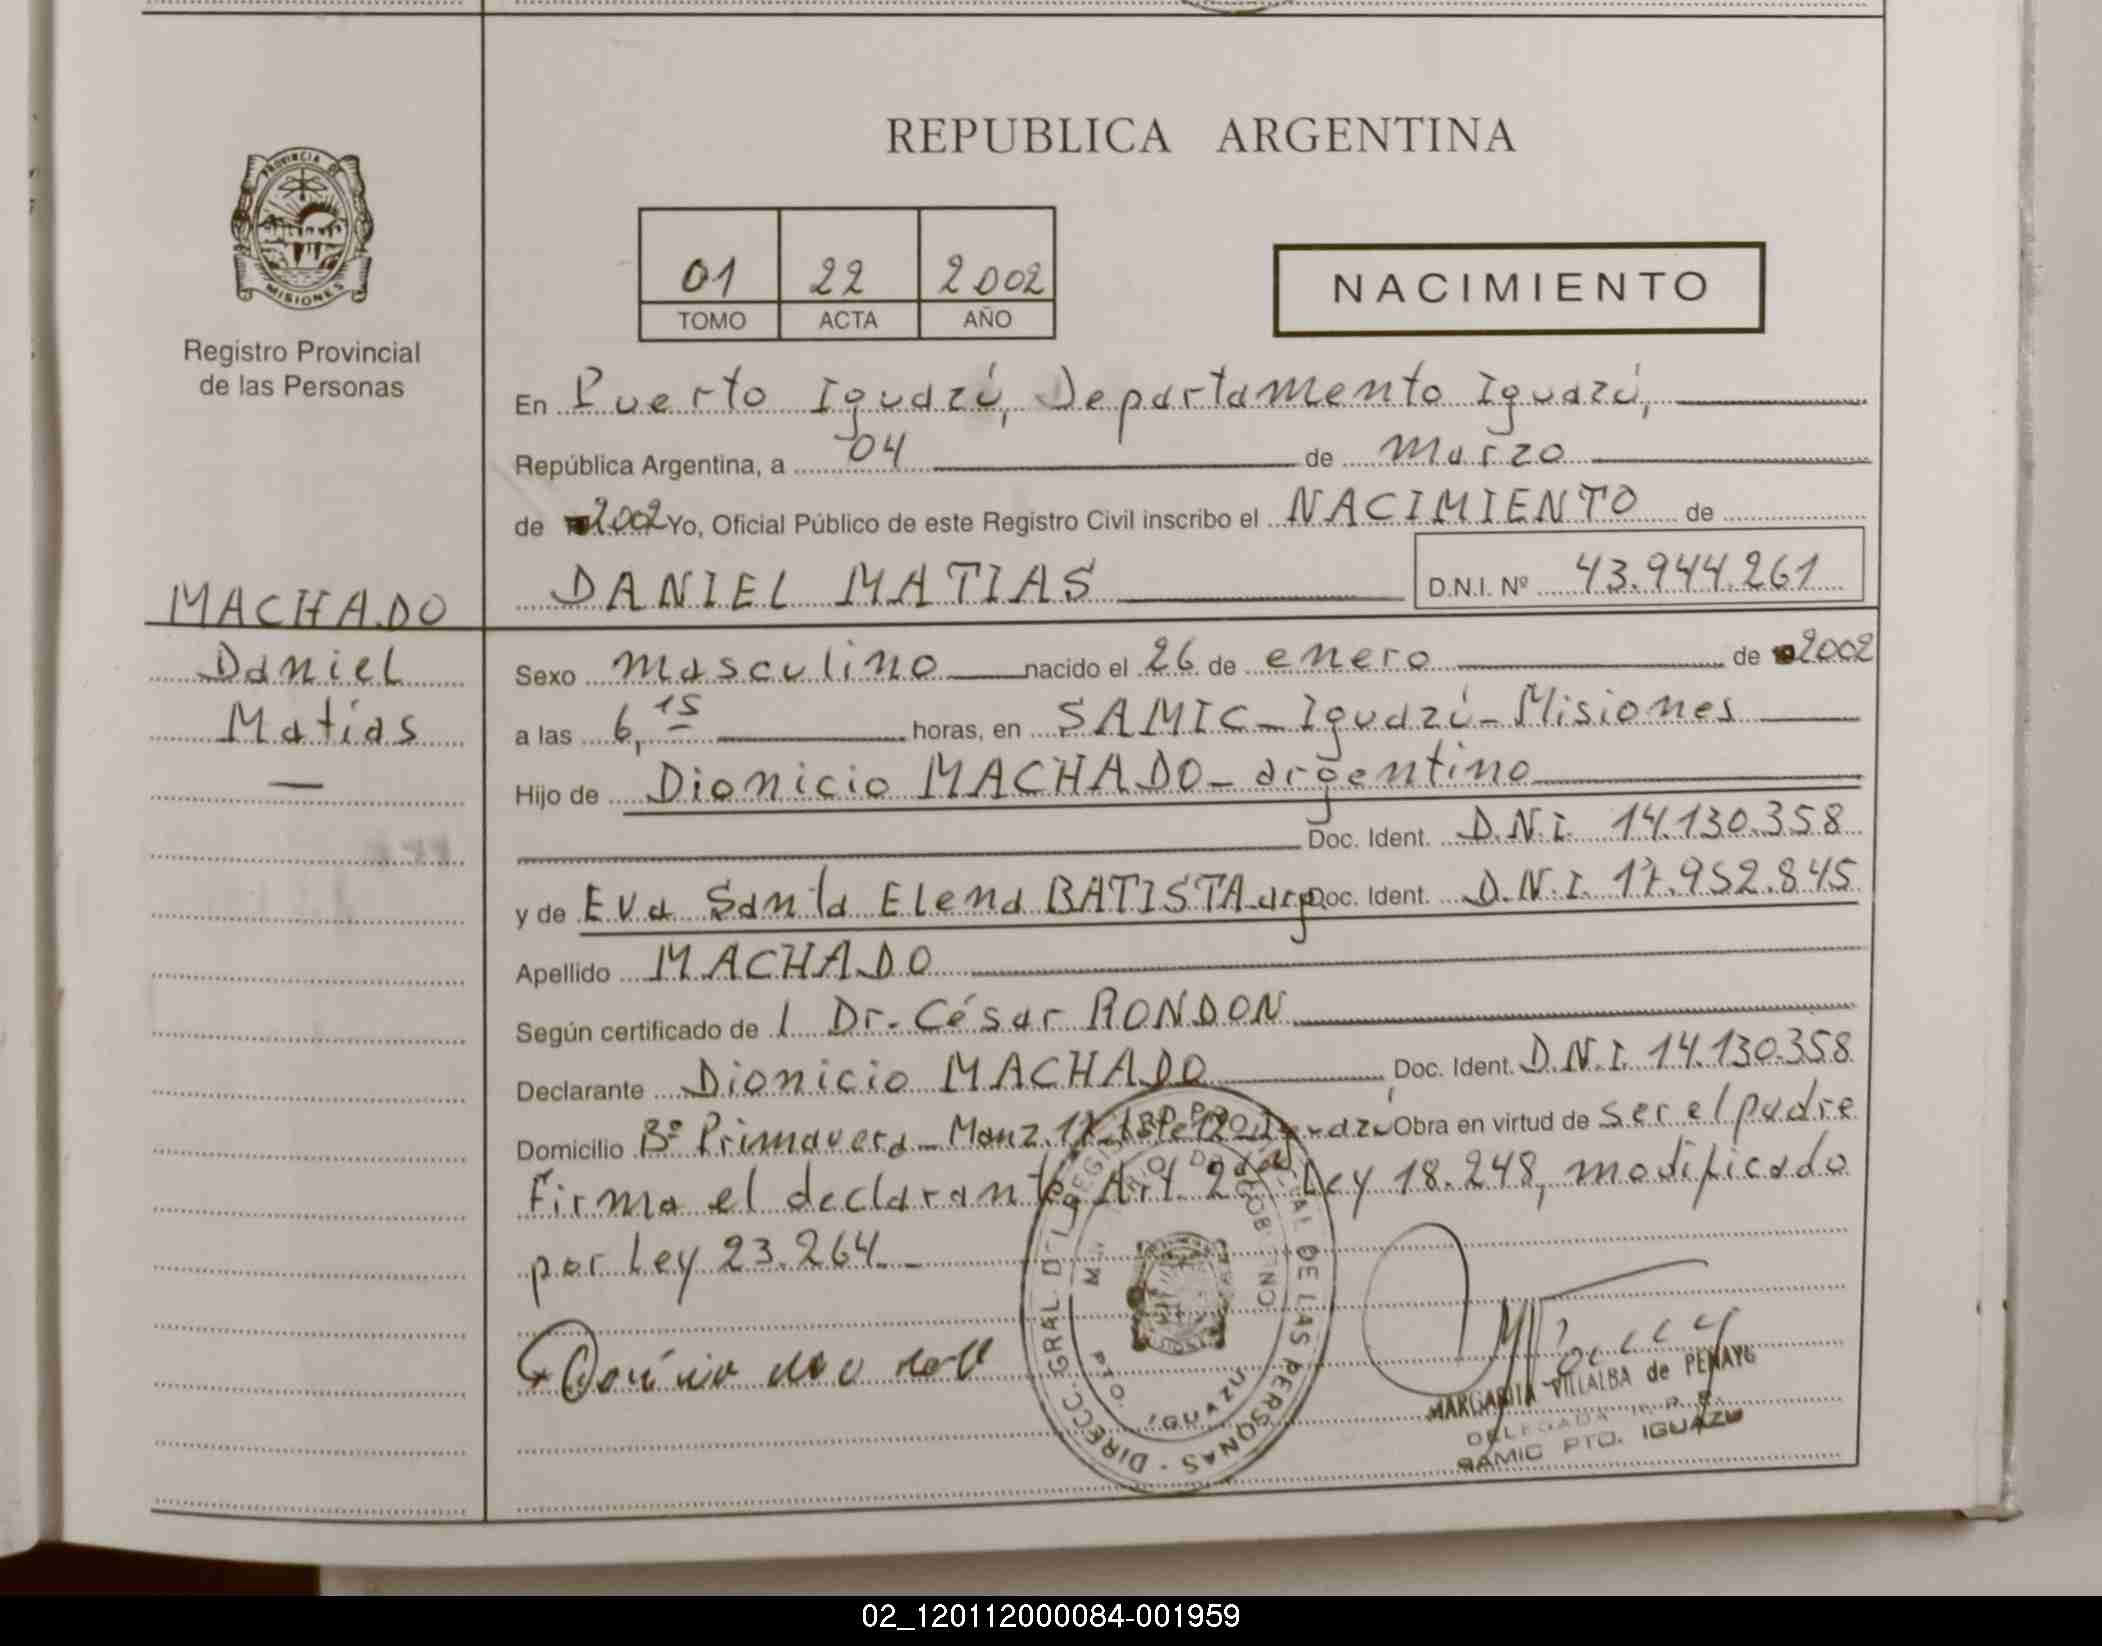 REPUBLICA ARGENTINA
PROVINCIA DE
MISIONES
Registro Provincial
de las Personas
01 22 2002
TOMO ACTA AÑO
NACIMIENTO
En Puerto Iguazú, Departamento Iguazú,
República Argentina, a 04 de marzo
de 2002 Yo, Oficial Público de este Registro Civil inscribo el NACIMIENTO de
DANIEL MATIAS D.N.I. Nº 43.944.261
MACHADO
Daniel
Matias
Sexo masculino nacido el 26 de enero de 2002
a las 6,15 horas, en SAMIC - Iguazú - Misiones
Hijo de Dionicio MACHADO - argentino
Doc. Ident. D.N.I. 14.130.358
y de Eva Santa Elena BATISTA - arg Doc. Ident. D.N.I. 17.952.845
Apellido MACHADO
Según certificado de l Dr. César RONDON
Declarante Dionicio MACHADO, Doc. Ident. D.N.I. 14.130.358
Domicilio Bº Primavera - Manz. Iguazú Obra en virtud de ser el padre
Firma el declarante. Art. 2 Ley 18.248, modificado
por Ley 23.264.-
DIRECC. GRAL DE REGISTRO DE LAS PERSONAS
PTO. IGUAZU
MARGARITA VILLALBA de PENAYO
DELEGADA R. P.
SAMIC PTO. IGUAZU
02_120112000084-001959